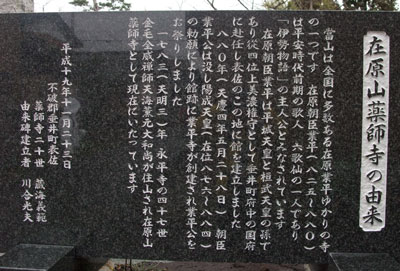 在原山薬師寺の由来
当山は全国に多数ある在原業平ゆかりの寺
の一つです 在原朝臣業平(八二五~八八〇)
は平安時代前期の歌人 六歌仙の一人であり
「伊勢物語」の主人公とみなされています
在原朝臣業平は平城天皇と桓武天皇の孫で
あり従四位上美濃権守として垂井町府中の国府
に赴任し表佐のこの地に館を建立しました
八八〇年(天慶四年五月二十八日) 朝臣
業平公は没し陽成天皇(在位八七六~八八四)
の勅願により館跡に業平寺が創建され業平公を
お祭りしました
一七八三(天明三)年 永平寺の四十七世
金毛金威禅師天海薬元大和尚が住山され在原山
薬師寺として現在にいたっています
平成十九年十一月二十三日
不破郡垂井町表佐
薬師寺二十世 蔵海義範
由来碑建立者 川合光夫